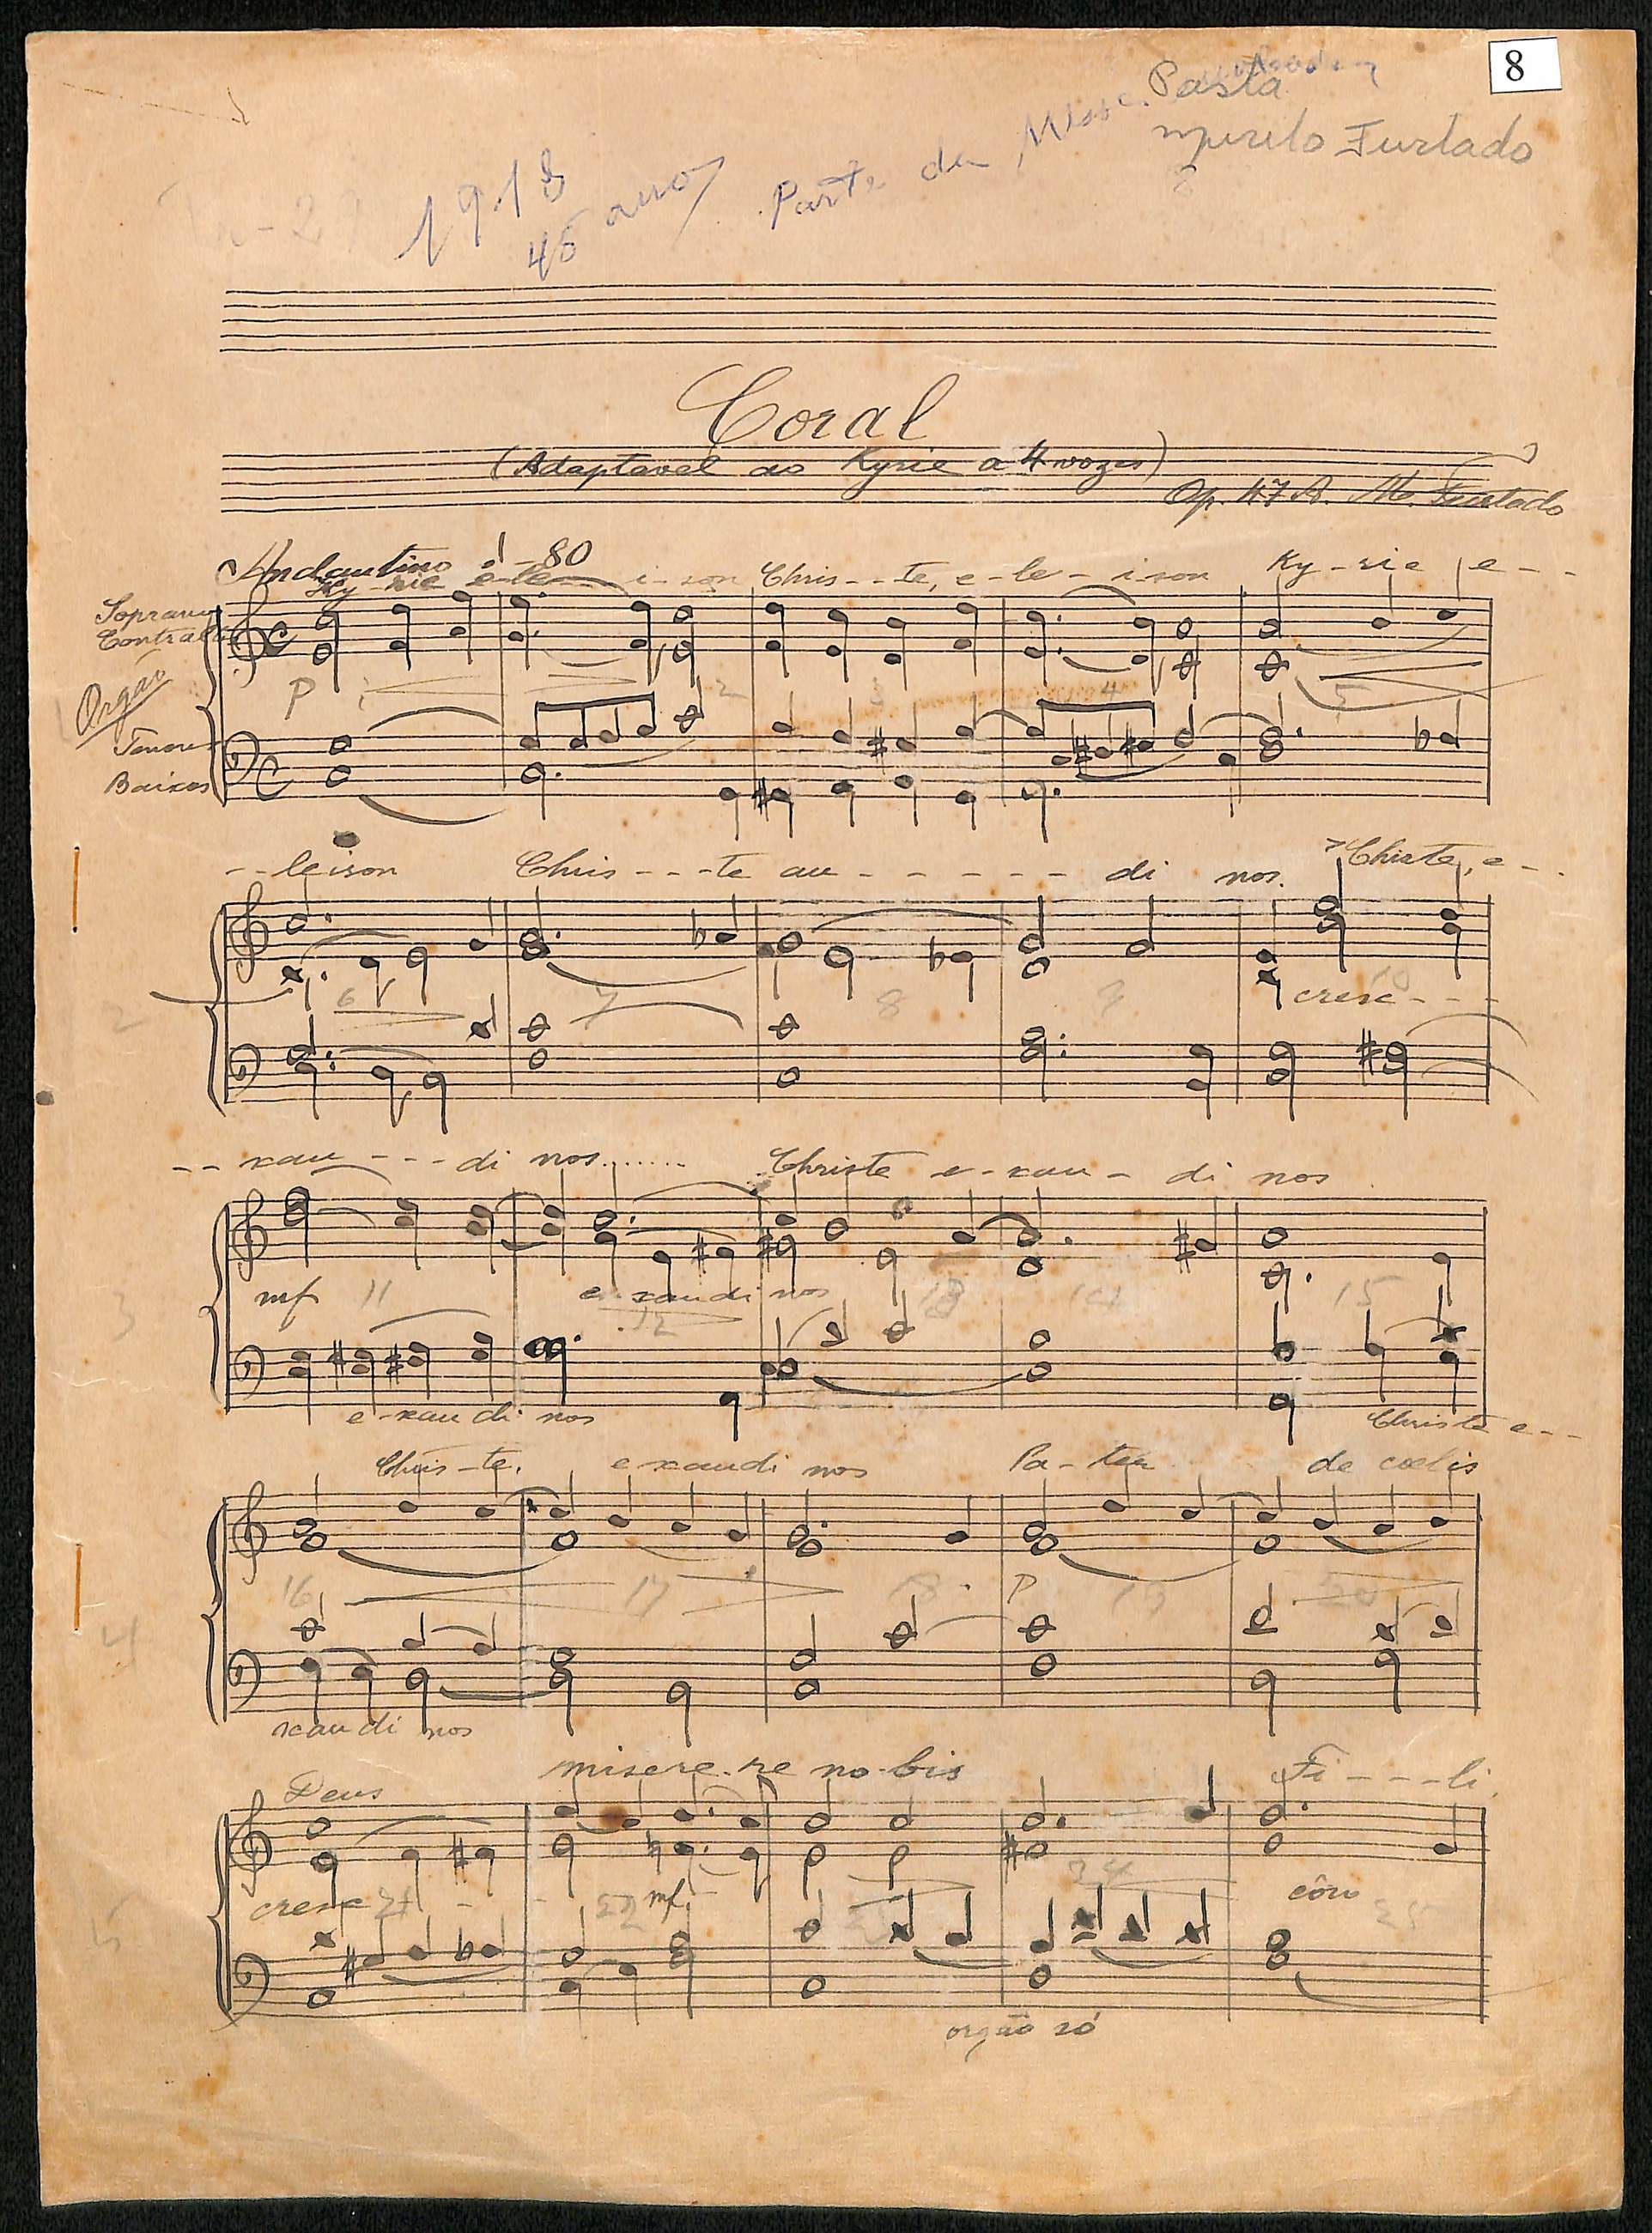 8
Pasta
Murilo Furtado
8
1918
45 anos
Parte da Missa
Coral
(Adaptavel ao Kyrie a 4 vozes)
Op. 47 A. M. Furtado
Andantino 80
Ky-rie e-le- i-son Chris--te, e-le-ison Ky-rie e--
Sopranos
Contraltos
Orgão
P
2 3 4 5
Tenores
Baixos
--leison Chris---te au----- di nos. Christe, e--
2 6 7 8 9 10
cresc---
--xau---di nos....... Christe e-xau-di nos
mf 11 e-xaudi nos 13 14 15
3 12
e-xaudi nos Christe e--
Chris-te, exaudi nos Pa-ter de cœlis
16 17 18 P 19 20
4
xaudi nos
Deus misere-re no-bis Fi---li
cresc 21 - - 22 mf 24 côro 25
5
orgão só